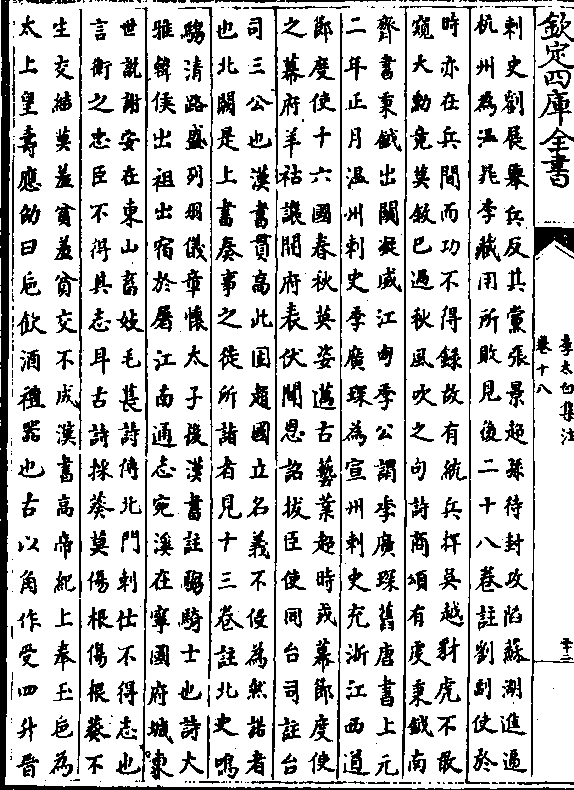 欽定四庫全書
李太白集注
卷十八
刺史劉展舉兵反其黨張景超孫待封攻陷蘇湖進逼
杭州為温晁李藏用所敗見後二十八卷註劉副使於
時亦在兵間而功不得録故有統兵捍吳越豺虎不敢
窺大勳竟莫敘已過秋風吹之句詩商頌有虔秉鉞南
齊書秉鉞出關凝威江甸季公謂李廣琛舊唐書上元
二年正月温州刺史季廣琛為宣州刺史充浙江西道
節度使十六國春秋英姿邁古藝業超時或幕節度使
之幕府羊祜讓開府表伏聞恩詔拔臣使同台司註台
司三公也漢書貫高此固趙國立名義不侵為然諾者
也北闕是上書奏事之徒所詣者見十三卷註北史鳴
騶清路盛列羽儀章懷太子後漢書註騶騎士也詩大
雅韓侯出祖出宿於屠江南通志宛溪在寧國府城東
世説謝安在東山畜妓毛萇詩傳北門刺仕不得志也
言衛之忠臣不得其志耳古詩採葵莫傷根傷根葵不
生交結莫羞貧羞貧交不成漢書高帝紀上奉玉巵為
太上皇壽應劭曰巵飲酒禮器也古以角作受四升晉